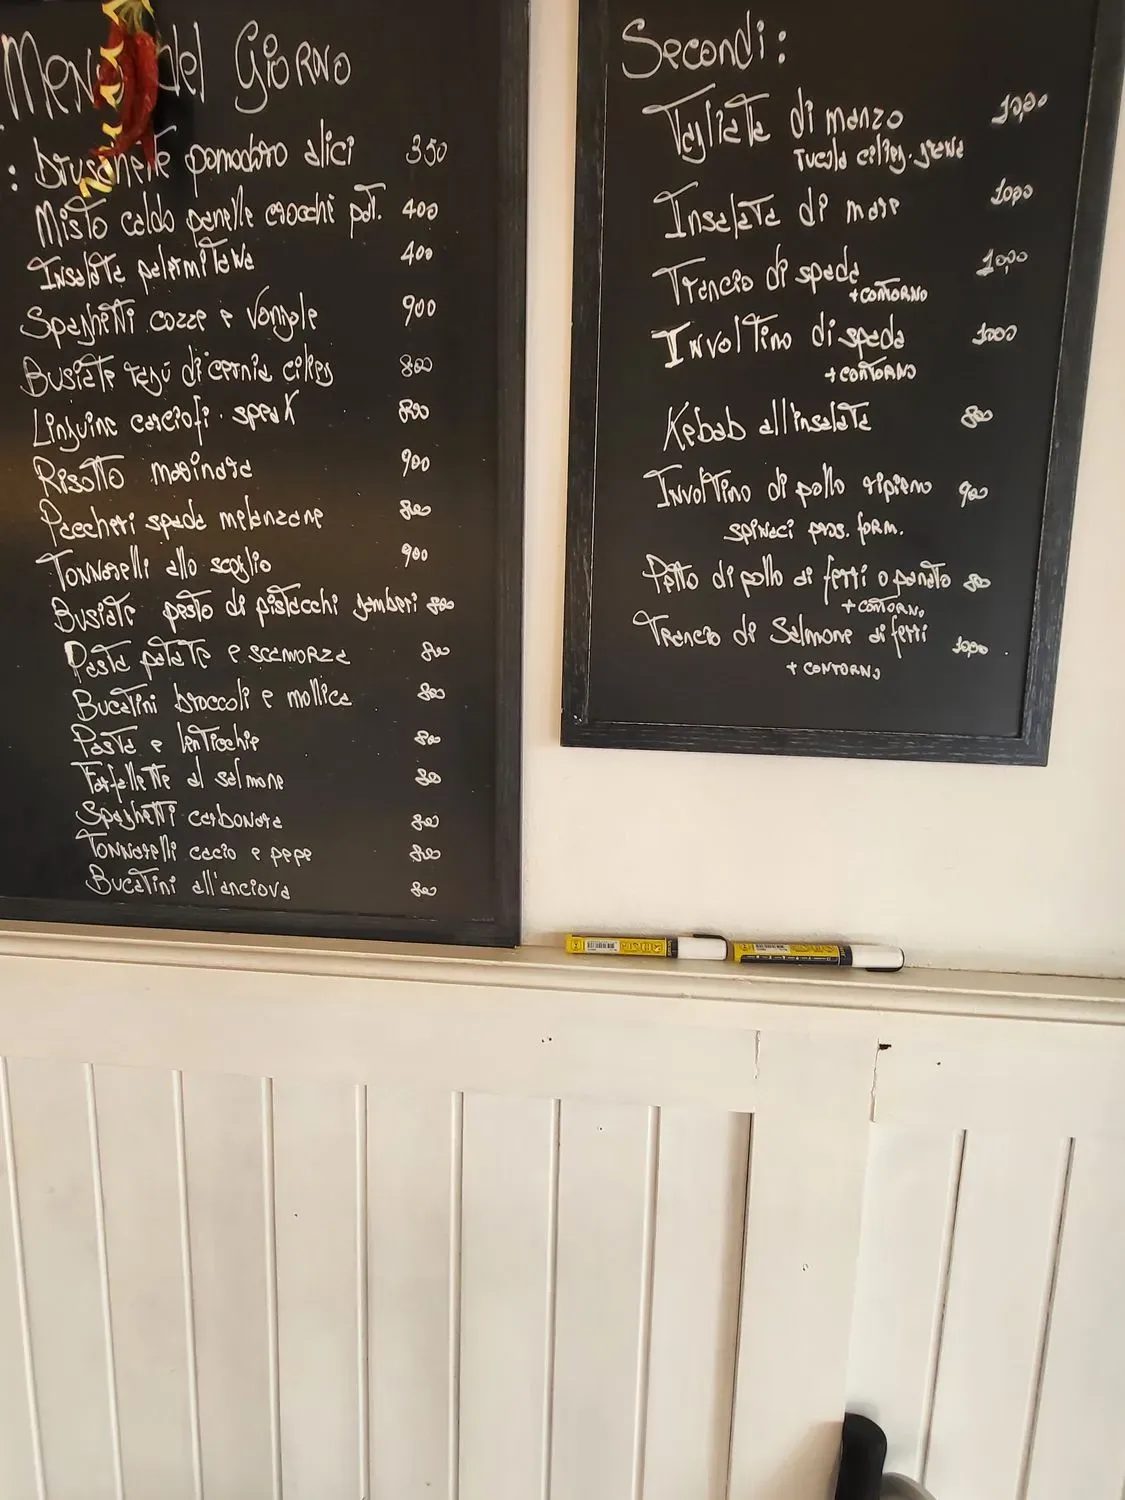 Menù del Giorno
: bruschette pomodoro alici 350
Misto caldo panelle crocchi pat. 400
Insalata palermitana 400
Spaghetti cozze e vongole 900
Busiate ragù di cernia cilieg 800
Linguine carciofi speak 800
Risotto marinara 900
Paccheri spada melanzane 800
Tonnarelli allo scoglio 900
Busiate pesto di pistacchi gamberi 800
Pasta patate e scamorza 800
Bucatini broccoli e mollica 800
Pasta e lenticchie 800
Farfallette al salmone 800
Spaghetti carbonara 800
Tonnarelli cacio e pepe 800
Bucatini all'anciova 800
Secondi:
Tagliata di manzo 1000
rucola cilieg. grana
Insalata di mare 1000
Trancio di spada 1000
+ CONTORNO
Involtino di spada 1000
+ CONTORNO
Kebab all'insalata 800
Involtino di pollo ripieno 900
spinaci pros. form.
Petto di pollo ai ferri o panato 800
+ CONTORNO
Trancio di Salmone ai ferri 1000
+ CONTORNO